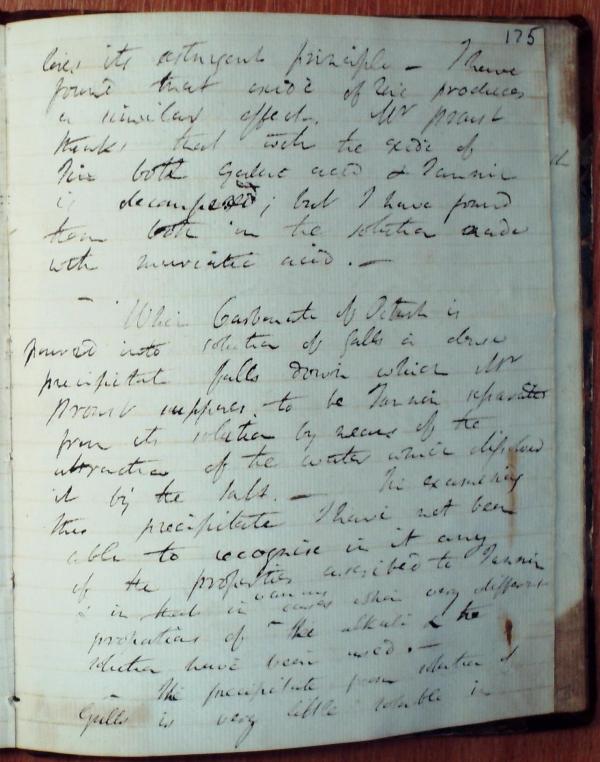 175
loses its astringent principle - I have
found that oxide of Zinc produces
a similar effect. Mr Proust
thinks that with the oxide of
Tin both Gallic acid & Tannin
is decomposed; but I have found
them both in the solution made
with muriatic acid. -
- When Carbonate of Potash is
poured into solution of galls a dense
precipitate falls down which Mr
Proust supposes to be Tannin separated
from its solution by means of the
attraction of the water which dissolved
it by the salt. - In examining
this precipitate I have not been
able to recognise in it any
of the properties ascribed to Tannin
& in that in various cases when very different
proportions of the alkali & the
solution have been used. -
- The precipitate from solution of
Galls is very little soluble in